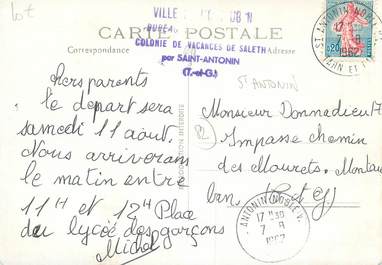 lot
VILLE
BUREAU
CARTE POSTALE
COLONIE DE VACANCES DE SALETH
Correspondance
Adresse
par SAINT-ANTONIN
(T.-et-G.)
ST ANTONIN
ST ANTONIN NOBLE
17 H
1962
TARN ET
0,20
Chers parents
le depart sera
samedi 11 aout.
Nous arriverons
le matin entre
11H et 12H Place
du lycée des garçons
Michel
82
Monsieur Donnadieu
Impasse chemin
des Mourets. Montau
ban (T et G)
ANTONIN NOBLE V.
17 H30
7 - 8
1962